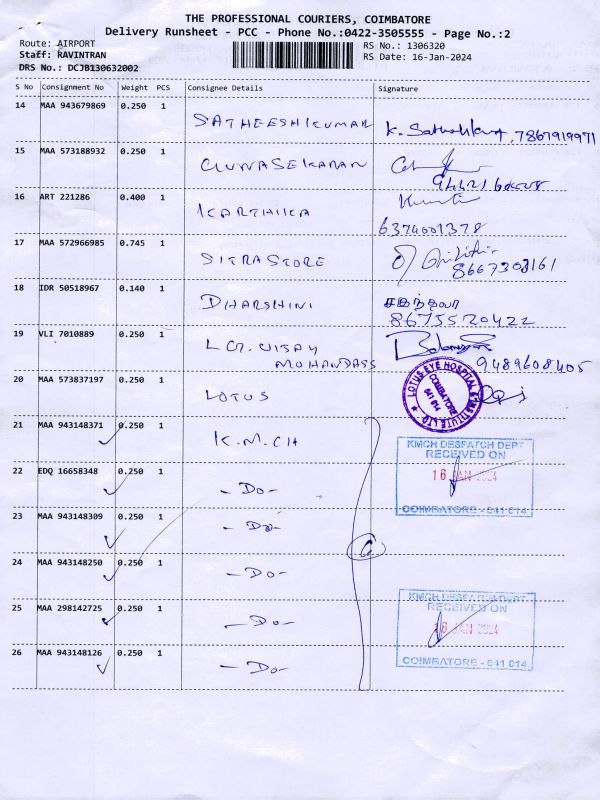 THE PROFESSIONAL COURIERS, COIMBATORE
Delivery Runsheet - PCC - Phone No.:0422-3505555 - Page No.:2
Route: AIRPORT
RS No.: 1306320
Staff: RAVINTRAN
RS Date: 16-Jan-2024
DRS No.: DCJB130632002
S No Consignment No Weight PCS Consignee Details Signature
14 MAA 943679869 0.250 1
SATHEESHKUMAR K. 7867919971
15 MAA 573188932 0.250 1
GUNASEKARAN
16 ART 221286 0.400 1
KARTHIKA
6374001378
17 MAA 572966985 0.745 1
SITRASTORE
8667303161
18 IDR 50518967 0.140 1
DHARSHINI
8675520422
19 VLI 7010889 0.250 1
L.G. VIJAY
MOHANDASS 9489608405
20 MAA 573837197 0.250 1
LOTUS
LOTUS EYE HOSPITAL & INSTITUTE LTD
COIMBATORE
641 014
21 MAA 943148371 0.250 1
K.M.CH
KMCH DESPATCH DEPT
RECEIVED ON
16 JAN 2024
COIMBATORE - 641 014
22 EDQ 16658348 0.250 1
- Do -
23 MAA 943148309 0.250 1
- Do -
24 MAA 943148250 0.250 1
- Do -
25 MAA 298142725 0.250 1
- Do -
KMCH DESPATCH DEPT
RECEIVED ON
16 JAN 2024
COIMBATORE - 641 014
26 MAA 943148126 0.250 1
- Do -